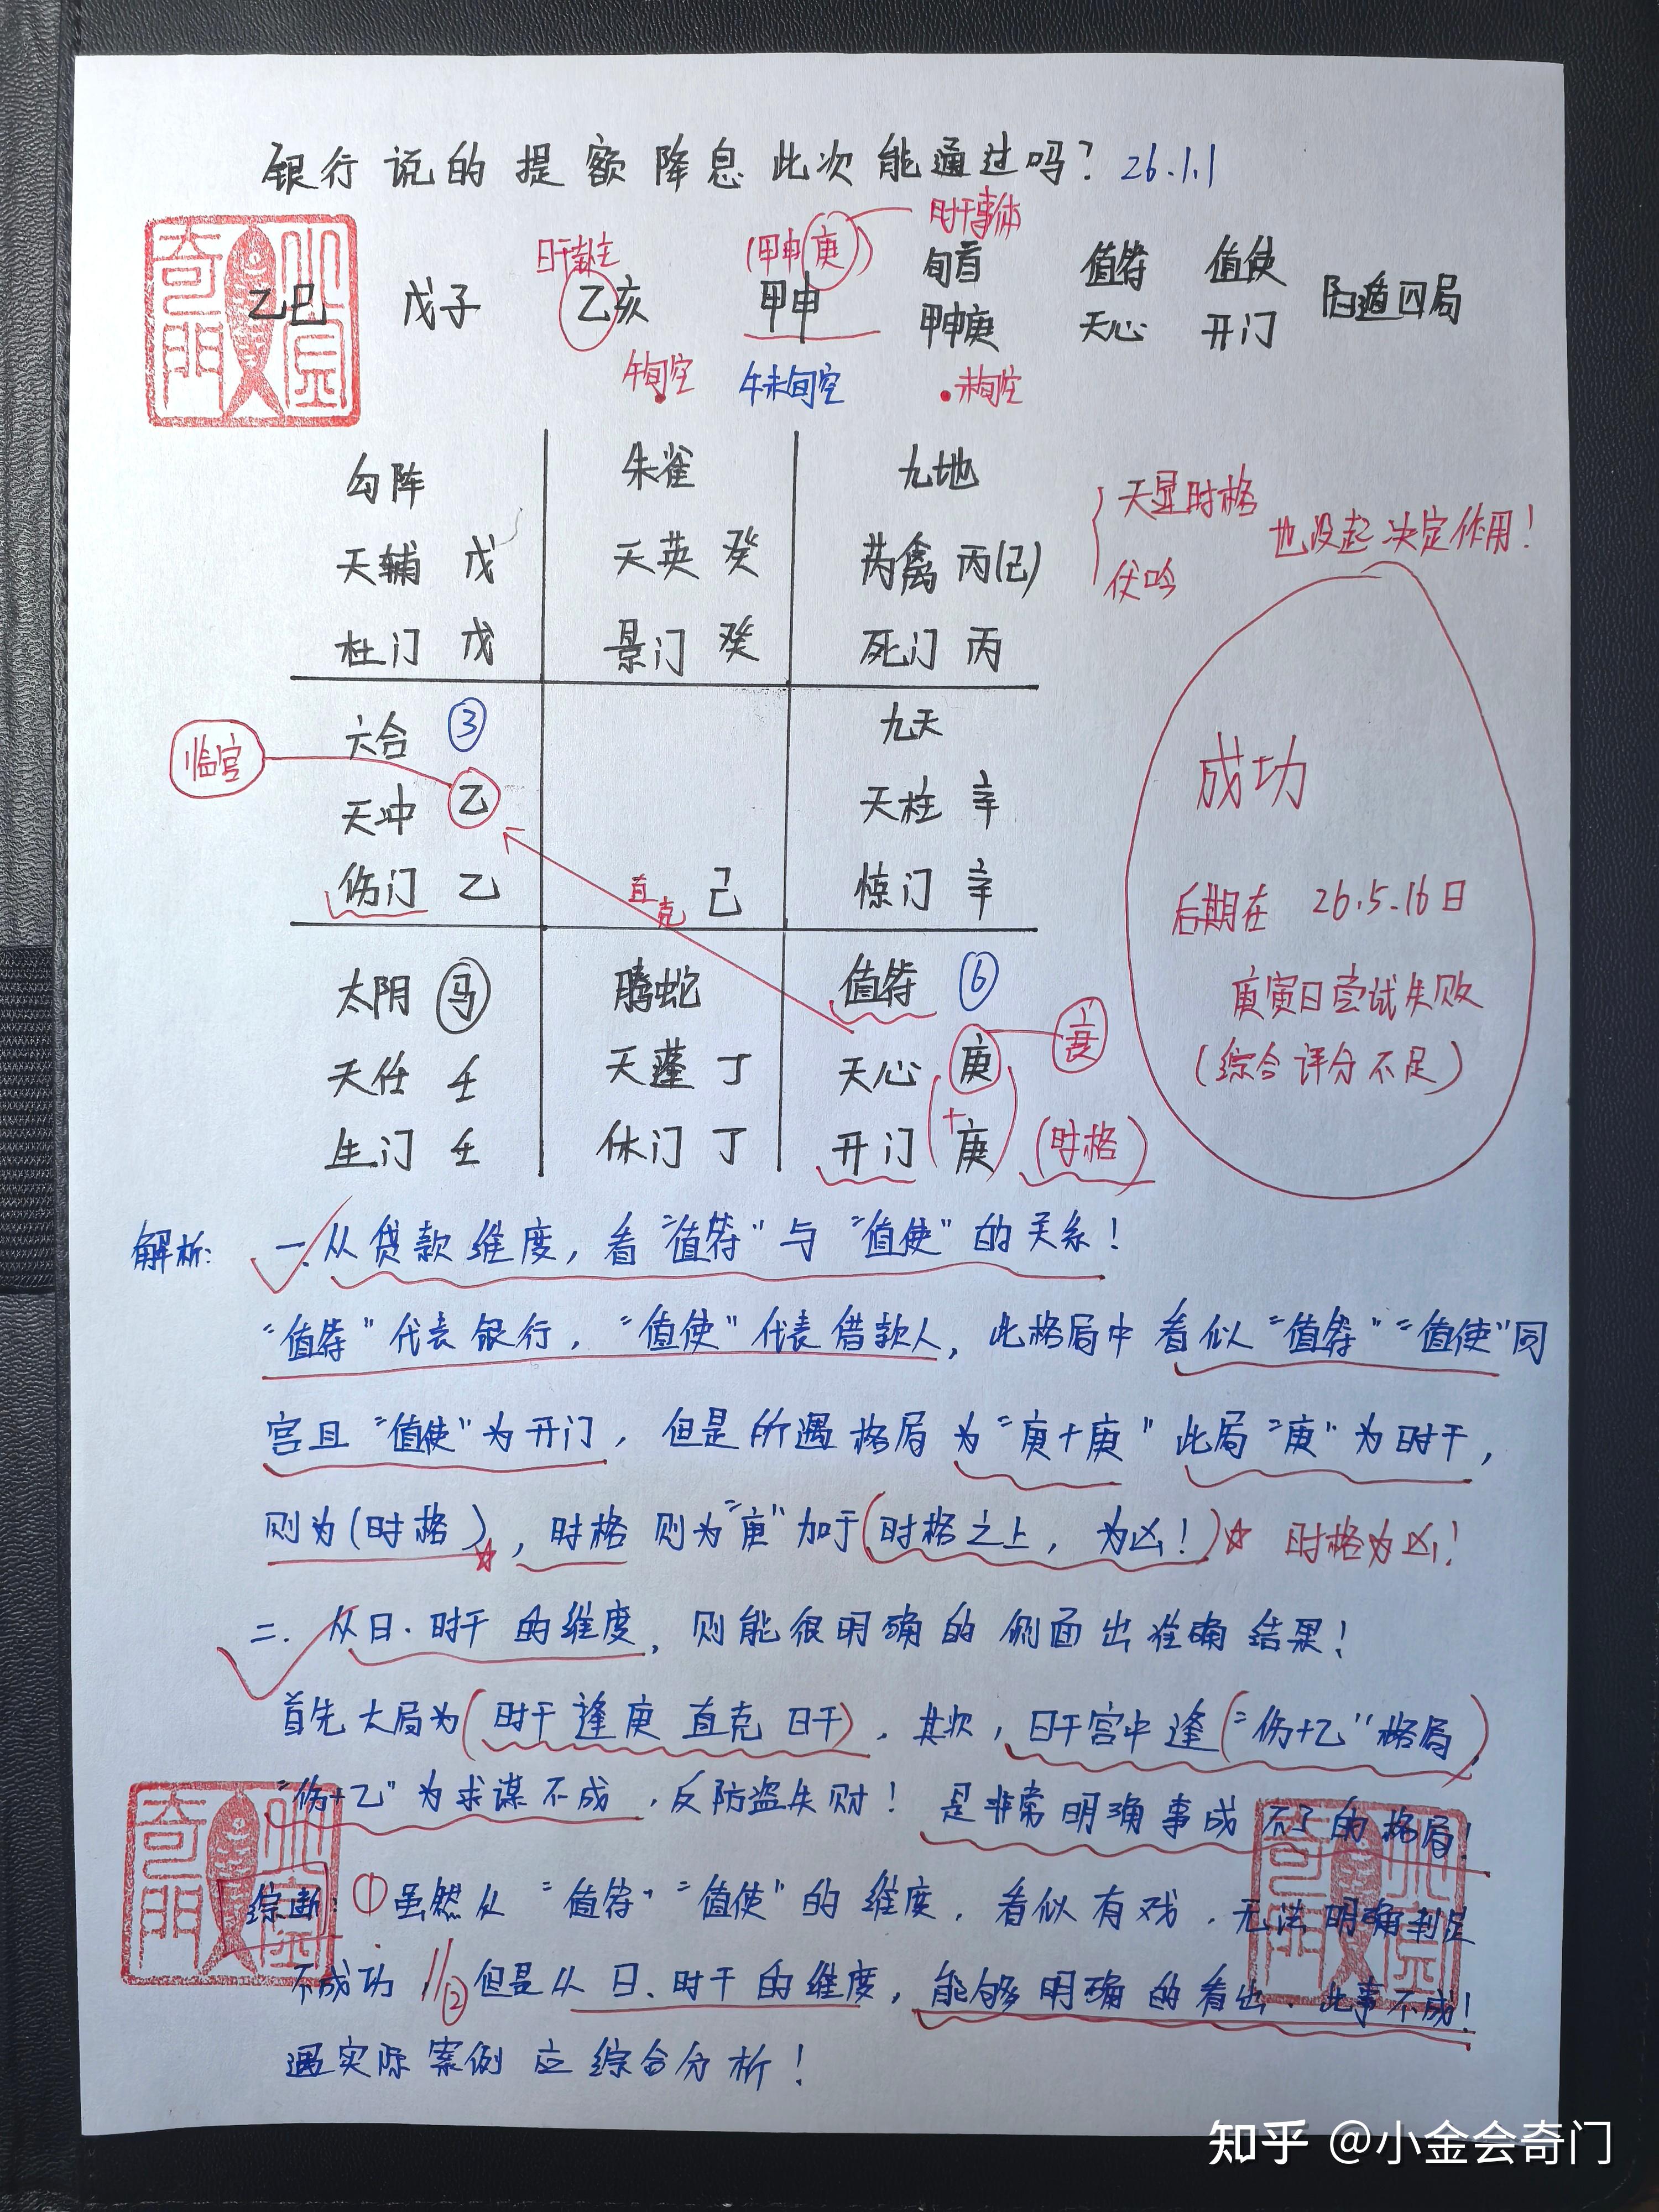 银行说的提额降息此次能通过吗？26.1.1
日干求主 (甲申庚) 时干事体
旬首 值符 值使
乙巳 戊子 乙亥 甲申 甲申庚 天心 开门 阳遁四局
午旬空 午未旬空 未旬空
勾阵 朱雀 九地
天辅 戊 天英 癸 芮禽 丙(己)
杜门 戊 景门 癸 死门 丙
天显时格
伏吟
也没起决定作用！
六合 ③ 九天
临官
天冲 乙 天柱 辛
伤门 乙 直克 己 惊门 辛
太阴 马 螣蛇 值符 ⑥
天任 壬 天蓬 丁 天心 庚
生门 壬 休门 丁 开门 + 庚 (时格)
成功
后期在 26.5.16日
庚寅日尝试失败
(综合评分不足)
解析： 一.从贷款维度，看“值符”与“值使”的关系！
“值符”代表银行，“值使”代表借款人，此格局中看似“值符”“值使”同
宫且“值使”为开门，但是所遇格局为“庚+庚”此局“庚”为时干，
则为(时格)，时格则为“庚”加于(时格之上，为凶！) 时格为凶！
二.从日.时干的维度，则能很明确的侧面出准确结果！
首先大局为(时干逢庚直克日干)，其次，日干宫中逢(“伤+乙”格局)
“伤+乙”为求谋不成，反防盗失财！是非常明确事成不了的格局！
综断：①虽然从“值符”“值使”的维度，看似有戏，无法明确判定
不成功，②但是从日、时干的维度，能够明确的看出.此事不成！
遇实际案例应综合分析！
知乎 @小金会奇门